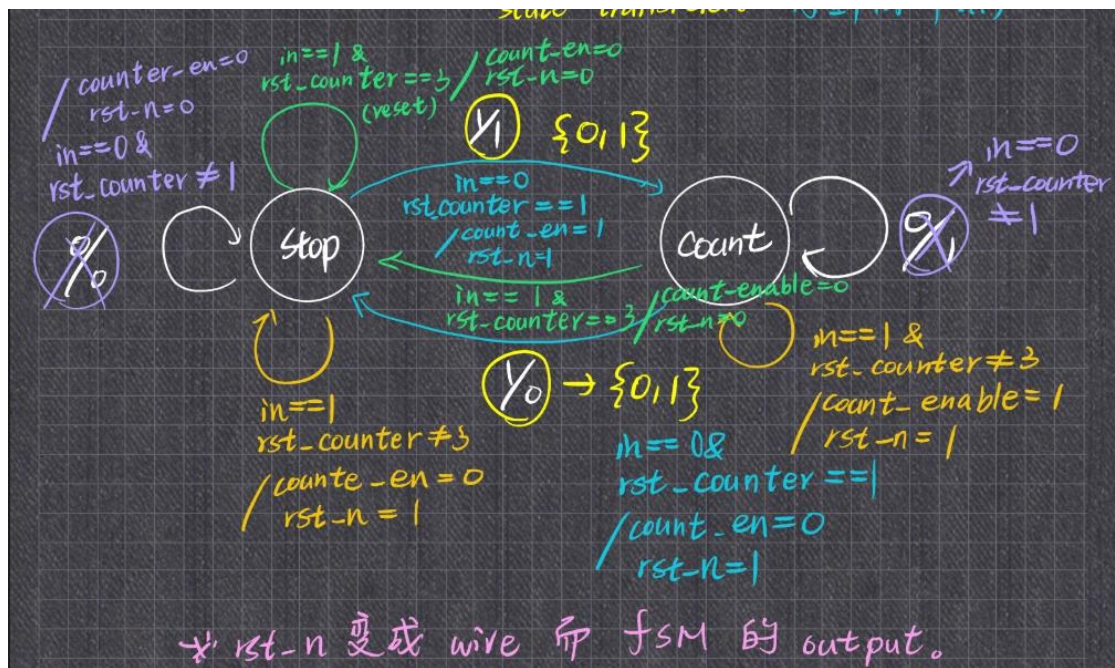 state
/ counter-en=0
rst-n=0
in==0 &
rst_counter ≠ 1
%
in==1 &
rst_counter ==3
(reset)
/ count-en=0
rst-n=0
1/1 {0,1}
in==0
rst_counter ==1
/ count_en=1
rst-n=1
stop
count
in==0
rst_counter
≠1
0/1
in== 1 &
rst_counter==3
/ count-enable=0
rst-n=0
1/0 → {0,1}
in==1
rst_counter ≠3
/ counte_en=0
rst-n = 1
in==1 &
rst_counter≠3
/count_enable=1
rst-n=1
in== 0&
rst_counter ==1
/count_en=0
rst-n=1
* rst-n 变成 wire 而 fSM 的 output。